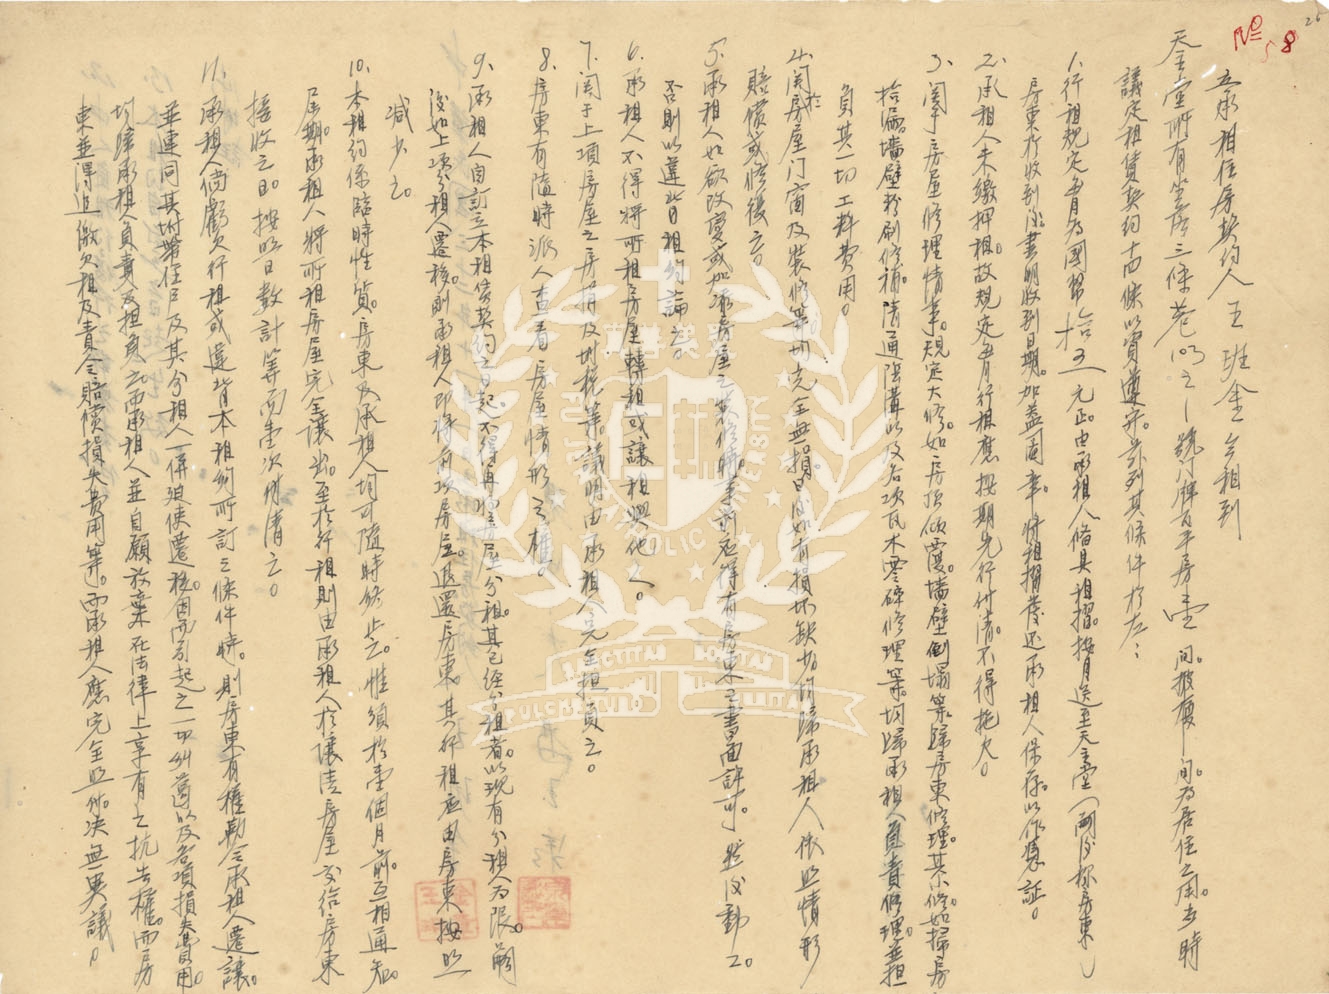 № 58
26
立承租住房契約人王班金今租到
天主堂所有坐落三條巷103之1號門牌百平房壹間。披廈一間。為居住之用。當時
議定租賃契約十四條以資遵守。茲列其條件於左：
1.行租規定每月為國幣拾五元正由承租人備具租摺。按月送至天主堂（嗣後称房東）
房東於收到後。書明收到日期。加蓋圖章。將租摺發还承租人保存。以作憑証。
2.承租人未繳押租。故規定每月行租應按期先行付清。不得拖欠。
3.關于房屋修理情事。規定大修。如房頂傾覆。墻壁倒塌等。歸房東修理。其小修。如掃房
拾漏。墻壁粉刷修補。清通陰溝以及各項瓦木零碎修理等。均歸承租人負責修理。並担
負其一切工料費用。
4.關於房屋门窗及裝修等。均完全無損。日後如有損坏缺少。均歸承租人依照情形
賠償或修復之。
5.承租人如欲改变或加添房屋之裝修時。事前应得有房東之書面許可。然後動工。
否則以違背租約論之。
6.承租人不得將所租房屋轉租或讓租與他人。
7.関于上項房屋之房捐及附稅等。議明由承租人完全担負之。
8.房東有隨時派人查看房屋情形之權。
9.承租人自訂立本租賃契約之日起。不得再將房屋分租。其已經分租者。以現有分租人為限。嗣
後如上項分租人遷移。則承租人即將有項房屋。退還房東。其行租应由房東按照
減少之。
10.本租約係臨時性質。房東及承租人均可隨時終止之。惟須於壹個月前。互相通知。
屆期。承租人將所租房屋完全讓出。至於行租則由承租人於讓清房屋交给房東
接收之日。按照日數計算而壹次付清之。
11.承租人倘虧欠行租或違背本租約所訂之條件時。則房東有權勒令承租人遷讓。
並連同其附帶住户及其分租人一併迫使遷移。因而引起之一切糾葛以及各項損失費用。
均歸承租人負責及担負之。而承租人並自願放棄在法律上享有之抗告權。而房
東並得追繳欠租及責令賠償損失費用等。而承租人應完全照付。决無異議。